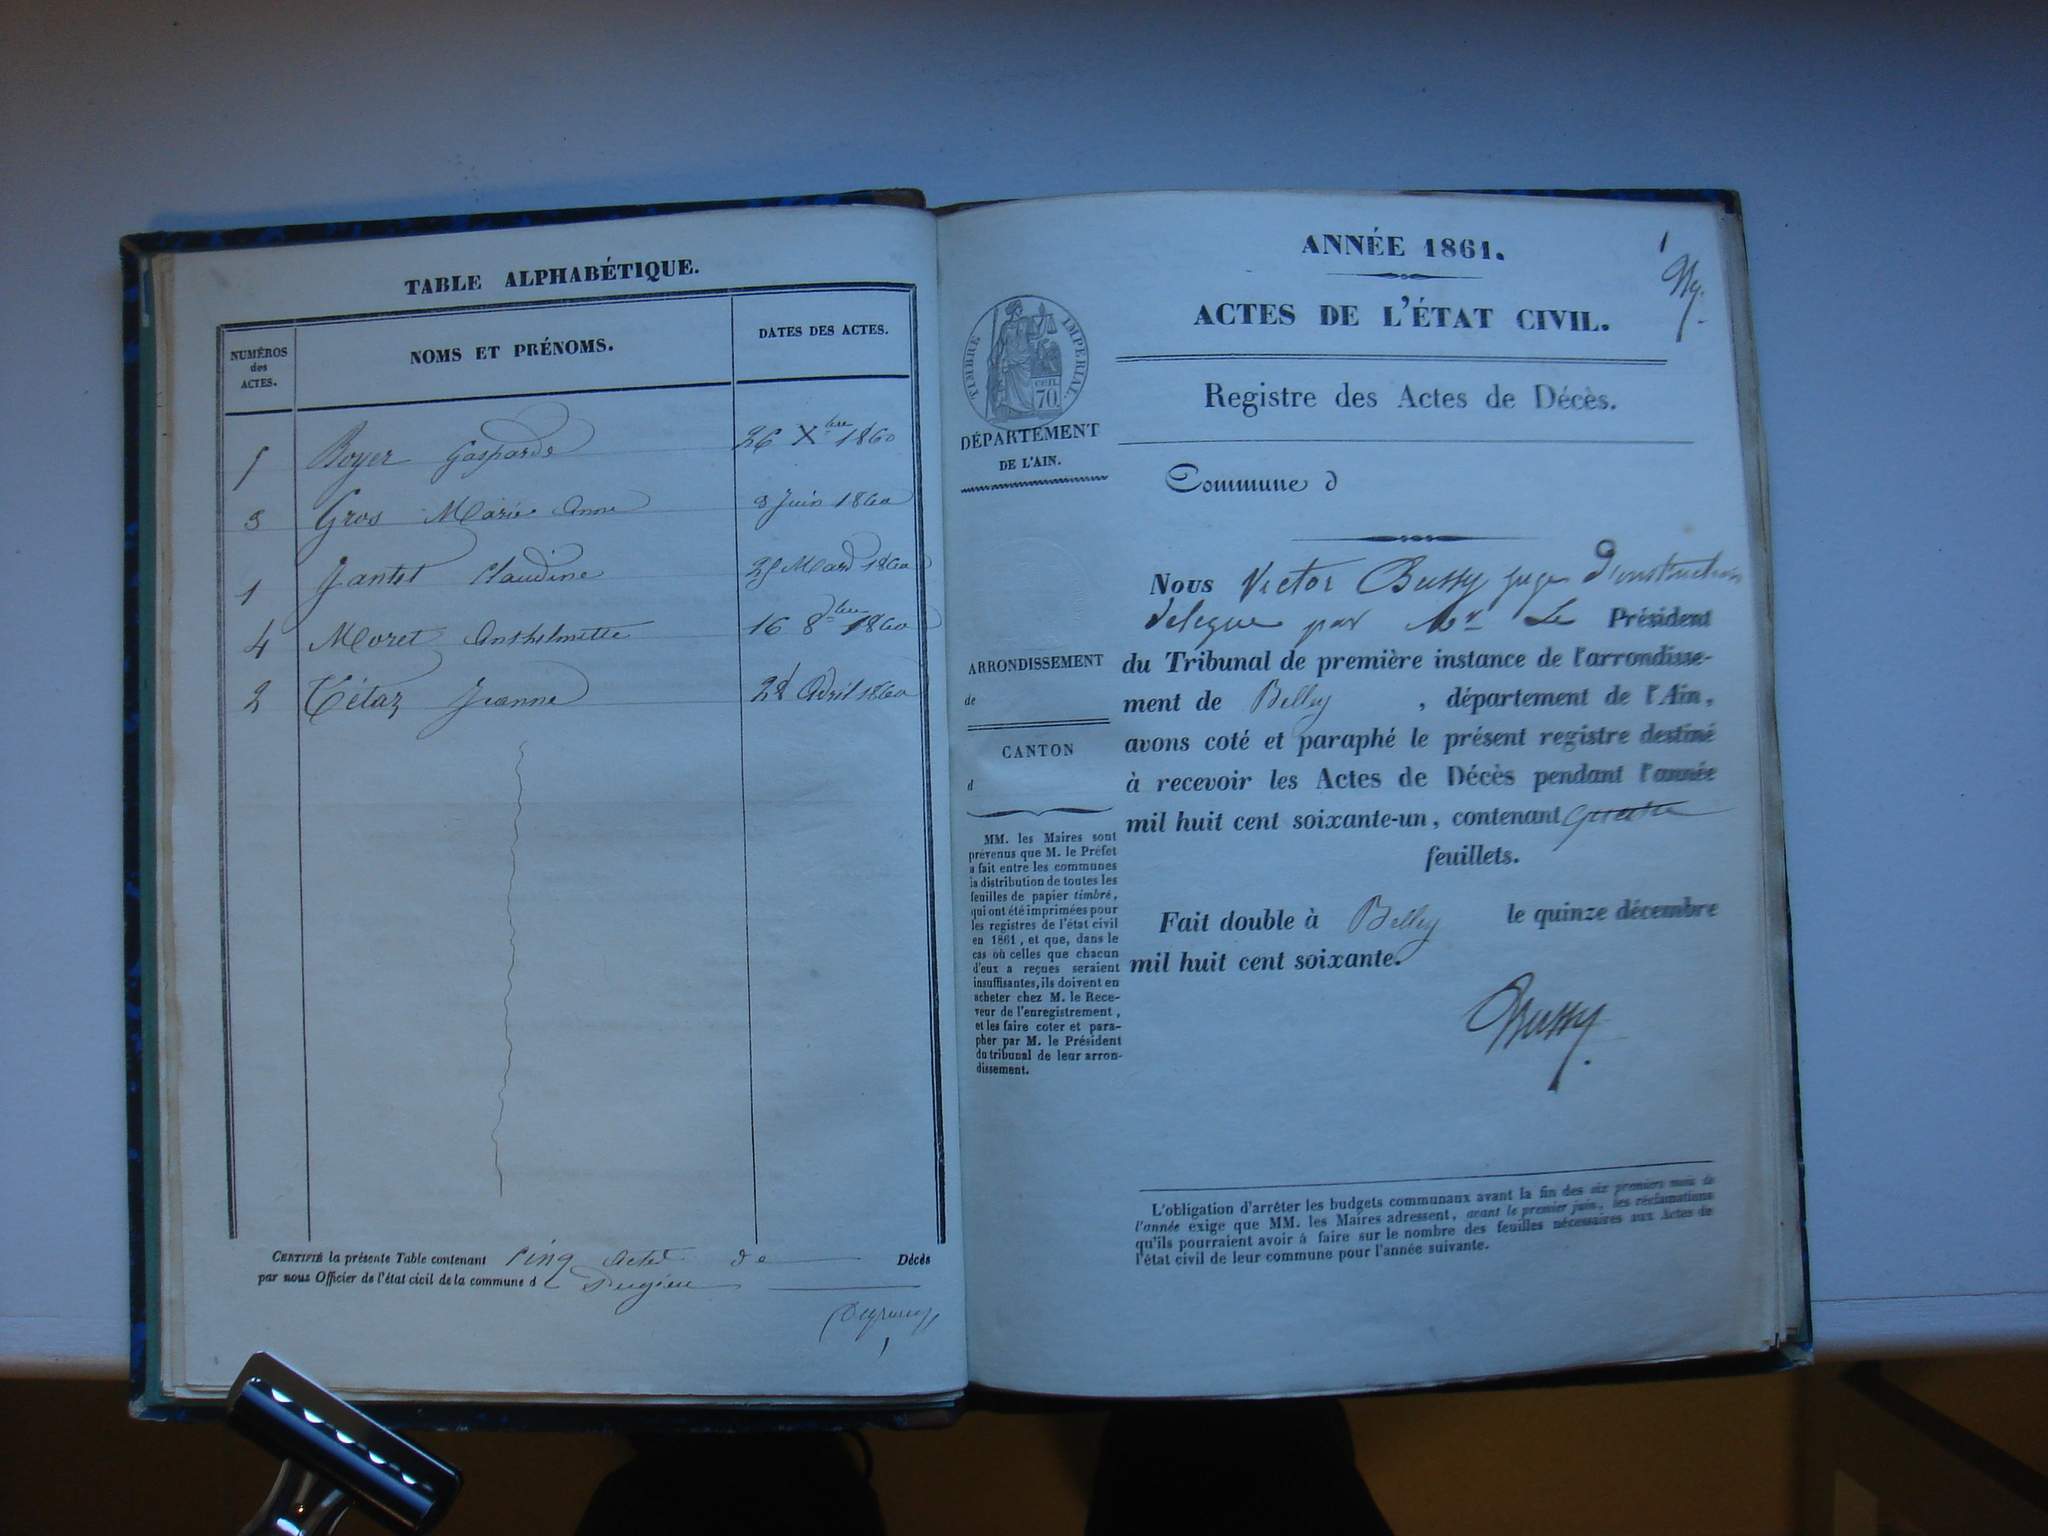 TABLE ALPHABÉTIQUE.
NUMÉROS
des
ACTES.
NOMS ET PRÉNOMS.
DATES DES ACTES.
5 Boyer Gasparde 26 Xbre 1860
3 Gros Marie Anne 8 Juin 1860
1 Jantet Claudine 25 Mars 1860
4 Moret Anthelmette 16 8bre 1860
2 Tétaz Jeanne 28 Avril 1860
CERTIFIÉ la présente Table contenant Cinq actes de Décès
par nous Officier de l'état civil de la commune d Pugieu
1
ANNÉE 1861.
ACTES DE L'ÉTAT CIVIL.
TIMBRE IMPERIAL.
CEN.
70
DÉPARTEMENT
DE L'AIN.
Registre des Actes de Décès.
Commune d
Nous Victor Bussy juge d'instruction
delegue par Mr Le Président
du Tribunal de première instance de l'arrondisse-
ment de Belley, département de l'Ain,
avons coté et paraphé le présent registre destiné
à recevoir les Actes de Décès pendant l'année
mil huit cent soixante-un, contenant quatre
feuillets.
Fait double à Belley le quinze décembre
mil huit cent soixante.
Bussy
ARRONDISSEMENT
de
CANTON
d
MM. les Maires sont
prévenus que M. le Préfet
a fait entre les communes
la distribution de toutes les
feuilles de papier timbré,
qui ont été imprimées pour
les registres de l'état civil
en 1861, et que, dans le
cas où celles que chacun
d'eux a reçues seraient
insuffisantes, ils doivent en
acheter chez M. le Rece-
veur de l'enregistrement,
et les faire coter et para-
pher par M. le Président
du tribunal de leur arron-
dissement.
L'obligation d'arrêter les budgets communaux avant la fin des six premiers mois de
l'année exige que MM. les Maires adressent, avant le premier juin, les réclamations
qu'ils pourraient avoir à faire sur le nombre des feuilles nécessaires aux Actes de
l'état civil de leur commune pour l'année suivante.